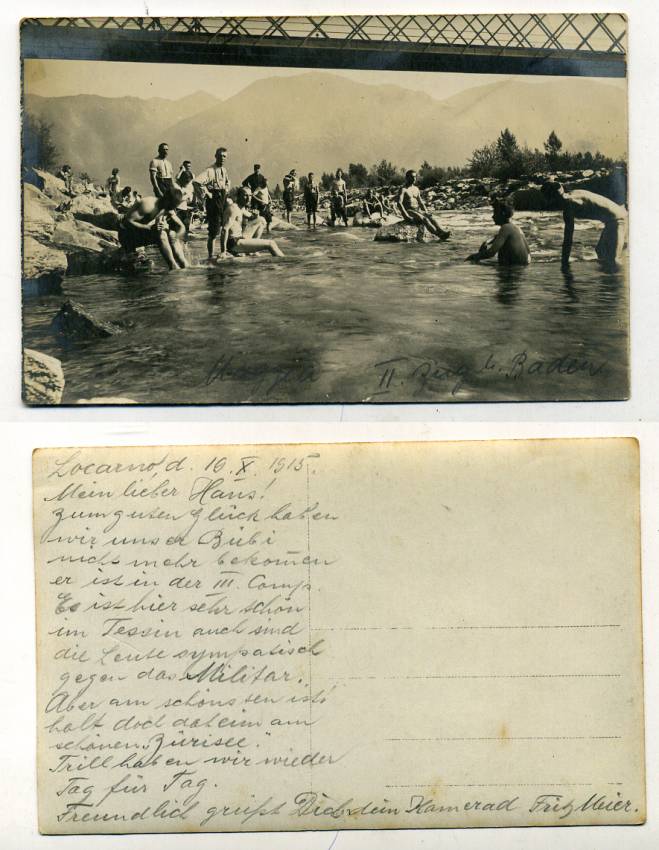 Maggia II. Zug b. Baden
Locarno, d. 19. X. 1915.
Mein lieber Hans!
Zum guten Glück haben
wir unser Bubi
nicht mehr bekommen
er ist in der III. Comp.
Es ist hier sehr schön
im Tessin auch sind
die Leute sympatisch
gegen das Militär.
Aber am schönsten ist's
halt doch daheim am
schönen „Zürisee."
Trill haben wir wieder
Tag für Tag.
Freundlich grüßt Dich dein Kamerad Fritz Meier.